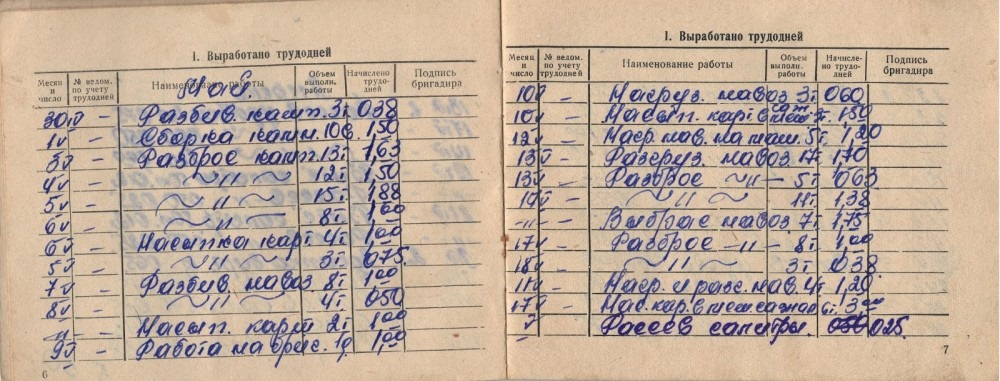 I. Выработано трудодней
Месяц и число № ведом. по учету трудодней Наименование работы Объем выполн. работы Начислено трудо-дней Подпись бригадира
Май.
30IV — Разбив. 3т 038
1V — Сборка 1,50
3V — Разброс 13т 1,63
4V — ~ " ~ 12т 1,50
5V — ~ " ~ 15т 1,88
6V — ~ " ~ 8т 1,00
6V — Насыпка карт. 4т 1,00
5V — ~ " ~ 3т 0,75
7V — Разбив. навоз. 8т 1,00
8V — ~ " ~ 4т 050
" — Насып. карт 2т 1,00
9V — Работа на 1,00
6
I. Выработано трудодней
Месяц и число № ведом. по учету трудодней Наименование работы Объем выполн. работы Начисле-но трудо-дней Подпись бригадира
10V — Нагруз. навоз 3т 060
10V — Насып. карт. в 1,50
12V — Нагр. нав. на маш. 5т 1,20
13V — Разгруз. навоз 17т 1,70
13V — Разброс ~ " — 5т 063
— ~ " ~ 11т 1,38
— " — Выброс навоз. 7т 1,75
17V — Разброс — " — 8т 1,00
18V — ~ " ~ 3т 038
— Нагр. и разг. нав. 4т 1,20
17V — Нас. кар. в 6т. 3,00
V — Рассев селитры. 025
7